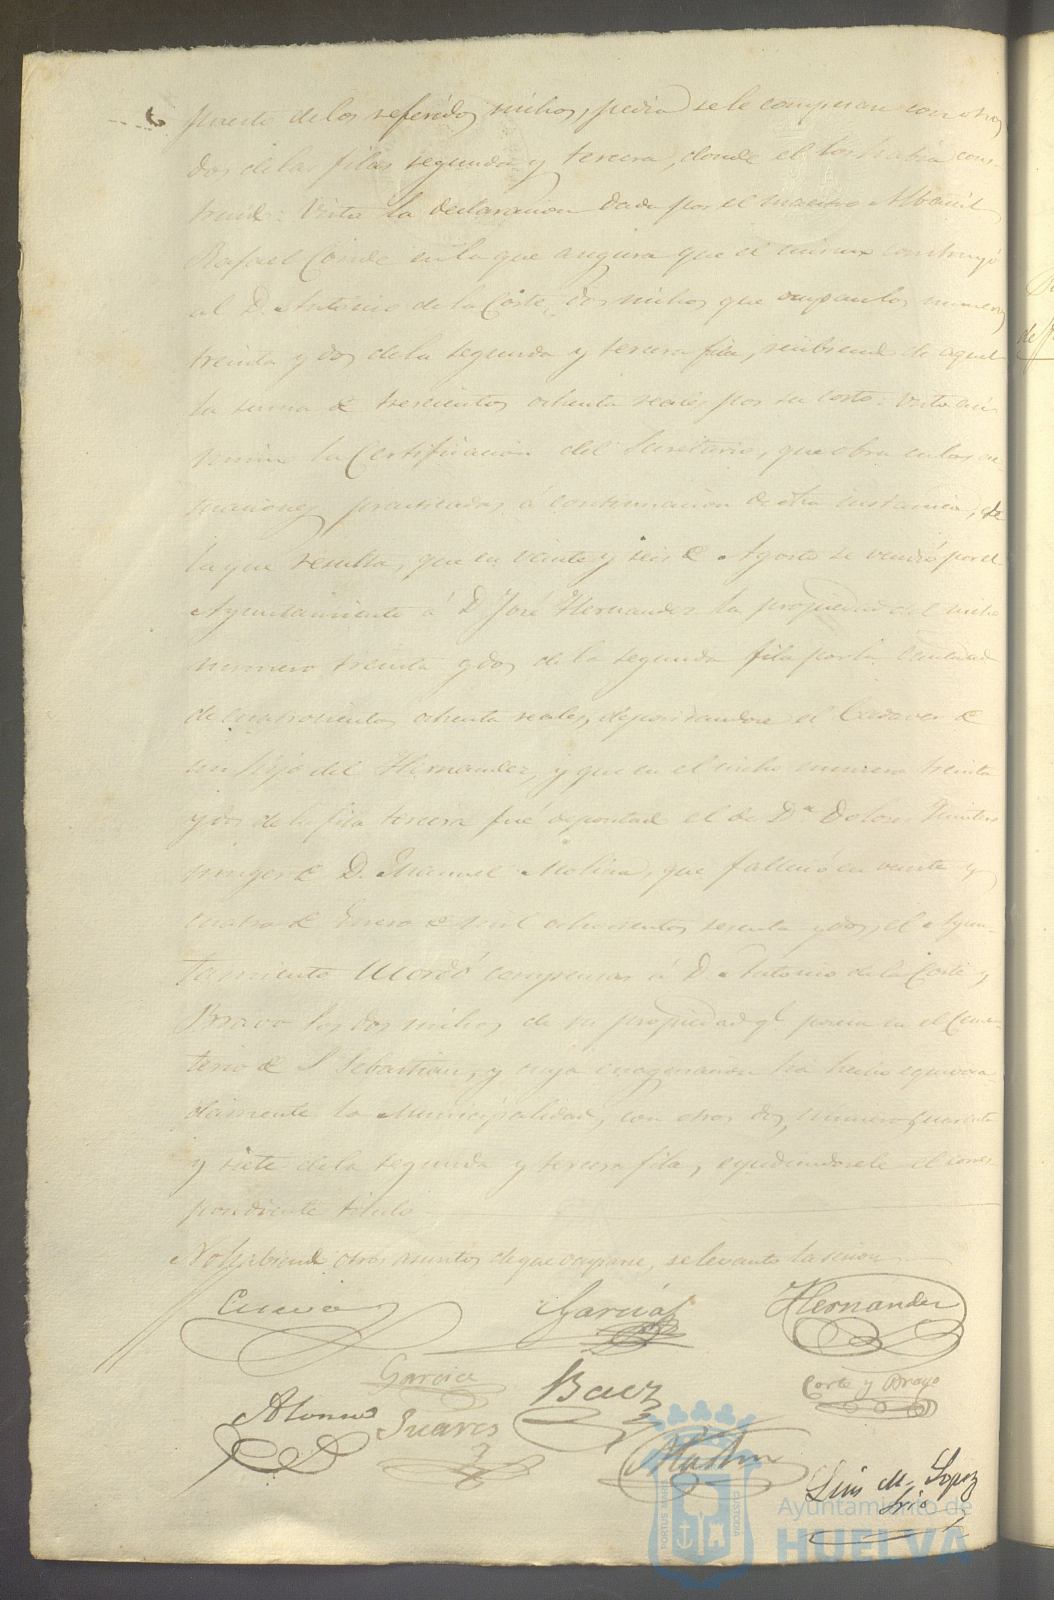 puesto de los referidos nichos, pedia se le compensaran con otros
dos de las filas segunda y tercera, donde el los habia cons-
truido: Vista la declaracion dada por el maestro Albañil
Rafael Conde en la que asegura que el mismo construyó
al D. Antonio de la Corte, dos nichos que ocupan los numeros
treinta y dos de la segunda y tercera fila, recibiendo de aquel
la suma de trescientos ochenta reales por su costo: Vista así
mismo la Certificacion del Secretario, que obra en las ac-
tuaciones practicadas á continuacion de otra instancia, de
la que resulta, que en veinte y seis de Agosto se vendió por el
Ayuntamiento á D. José Hernandez la propiedad del nicho
numero treinta y dos de la segunda fila por la Cantidad
de cuatrocientos ochenta reales, depositandose el Cadaver de
un hijo del Hernandez, y que en el nicho numero treinta
y dos de la fila tercera fué depositado el de Dª Dolores Quintero
muger de D. Manuel Molina, que falleció en veinte y
cuatro de Enero de mil ochocientos sesenta y dos, el Ayun-
tamiento Acordó compensar á D. Antonio de la Corte y
Bravo los dos nichos de su propiedad q.e poseia en el Cemen-
terio de S. Sebastian, y cuya enagenacion ha hecho equivoca-
damente la Municipalidad, con otros dos, números cuarenta
y siete de la segunda y tercera fila, espidiendosele el corres-
pondiente titulo
No habiendo otros asuntos de que ocuparse, se levantó la sesion
Cueva García Hernandez
García Baez Corte y Bravo
Alonso Suares Martin
Luis M. Lopez
Srio
PORTUS MARIS CUSTODIA
Ayuntamiento de
HUELVA